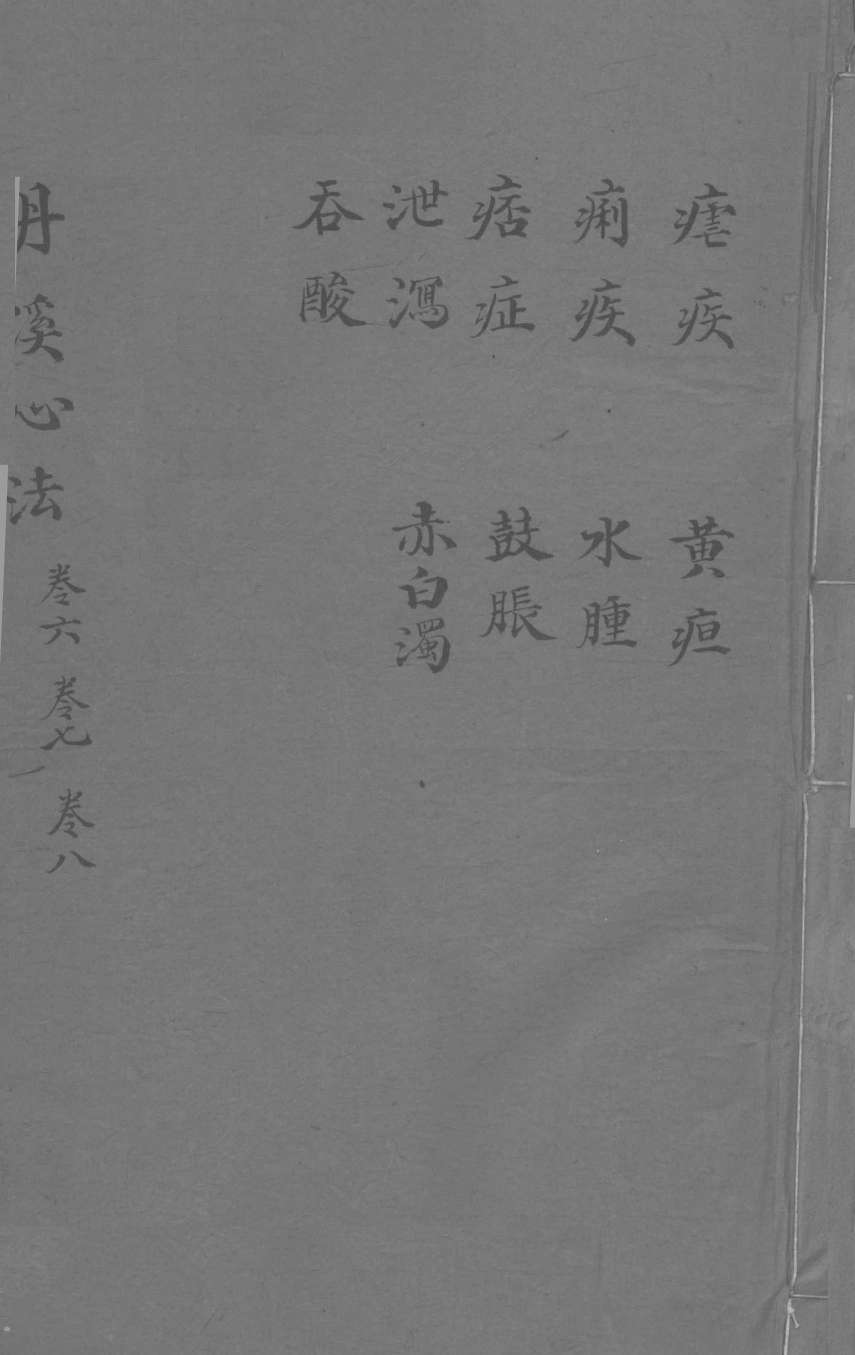 瘧疾
痢疾
痞症
泄瀉
吞酸
黄疸
水腫
鼓脹
赤白濁
丹溪心法 卷六 卷七 卷八